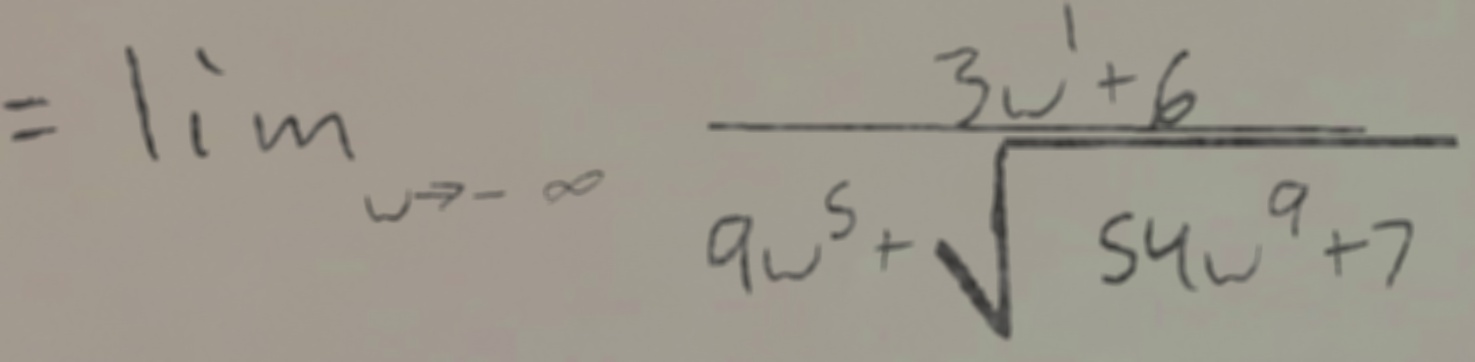 = lim_{w→-∞} \frac{3w^1+6}{9w^5+\sqrt{54w^9+7}}